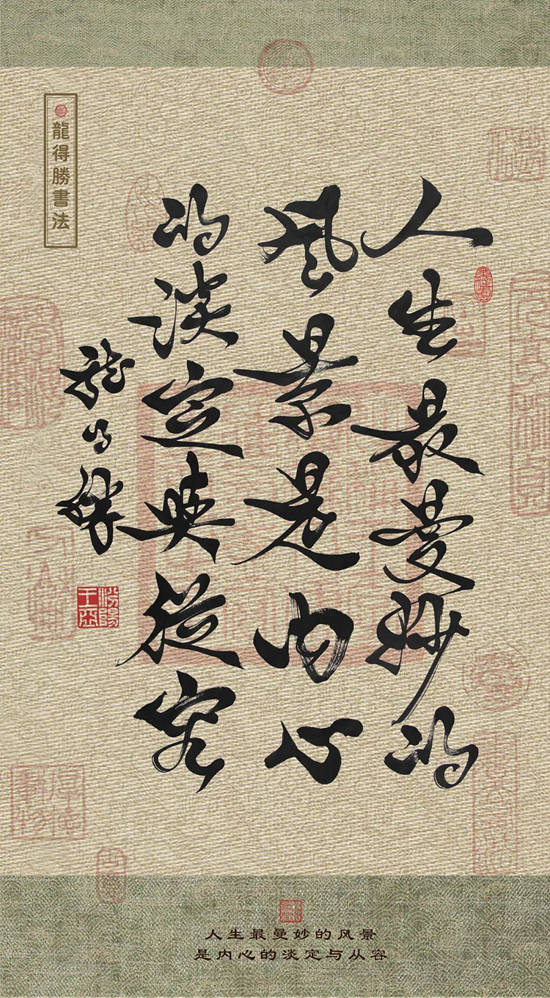 人生最曼妙的
风景是内心
的淡定與從容
龍得勝
龍得勝書法
人生最曼妙的风景
是内心的淡定与从容